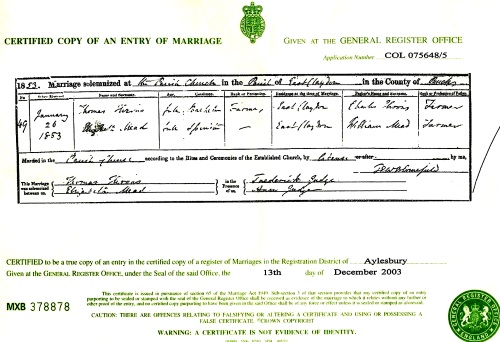 CERTIFIED COPY OF AN ENTRY OF MARRIAGE
GIVEN AT THE GENERAL REGISTER OFFICE
Application Number COL 075648/5
1853. Marriage solemnized at the Parish Church in the Parish of East Claydon in the County of Bucks
No. When Married Name and Surname Age Condition Rank or Profession Residence at the time of Marriage Father's Name and Surname Rank or Profession of Father
49 January 26 1853 Thomas full Bachelor Farmer East Claydon Charles Farmer
Mead full Spinster — East Claydon William Mead Farmer
Married in the Parish Church according to the Rites and Ceremonies of the Established Church, by License or after by me,
This Marriage was solemnized between us, Thomas in the Presence of us, Frederick Judge
Elizabeth Mead Judge
CERTIFIED to be a true copy of an entry in the certified copy of a register of Marriages in the Registration District of Aylesbury
Given at the GENERAL REGISTER OFFICE, under the Seal of the said Office, the 13th day of December 2003
MXB 378878
This certificate is issued in pursuance of section 65 of the Marriage Act 1949. Sub-section 3 of that section provides that any certified copy of an entry
purporting to be sealed or stamped with the seal of the General Register Office shall be received as evidence of the marriage to which it relates without any further or
other proof of the entry, and no certified copy purporting to have been given in the said Office shall be of any force or effect unless it is sealed or stamped as aforesaid.
CAUTION: THERE ARE OFFENCES RELATING TO FALSIFYING OR ALTERING A CERTIFICATE AND USING OR POSSESSING A
FALSE CERTIFICATE. ©CROWN COPYRIGHT
WARNING: A CERTIFICATE IS NOT EVIDENCE OF IDENTITY.
GENERAL REGISTER OFFICE
ENGLAND